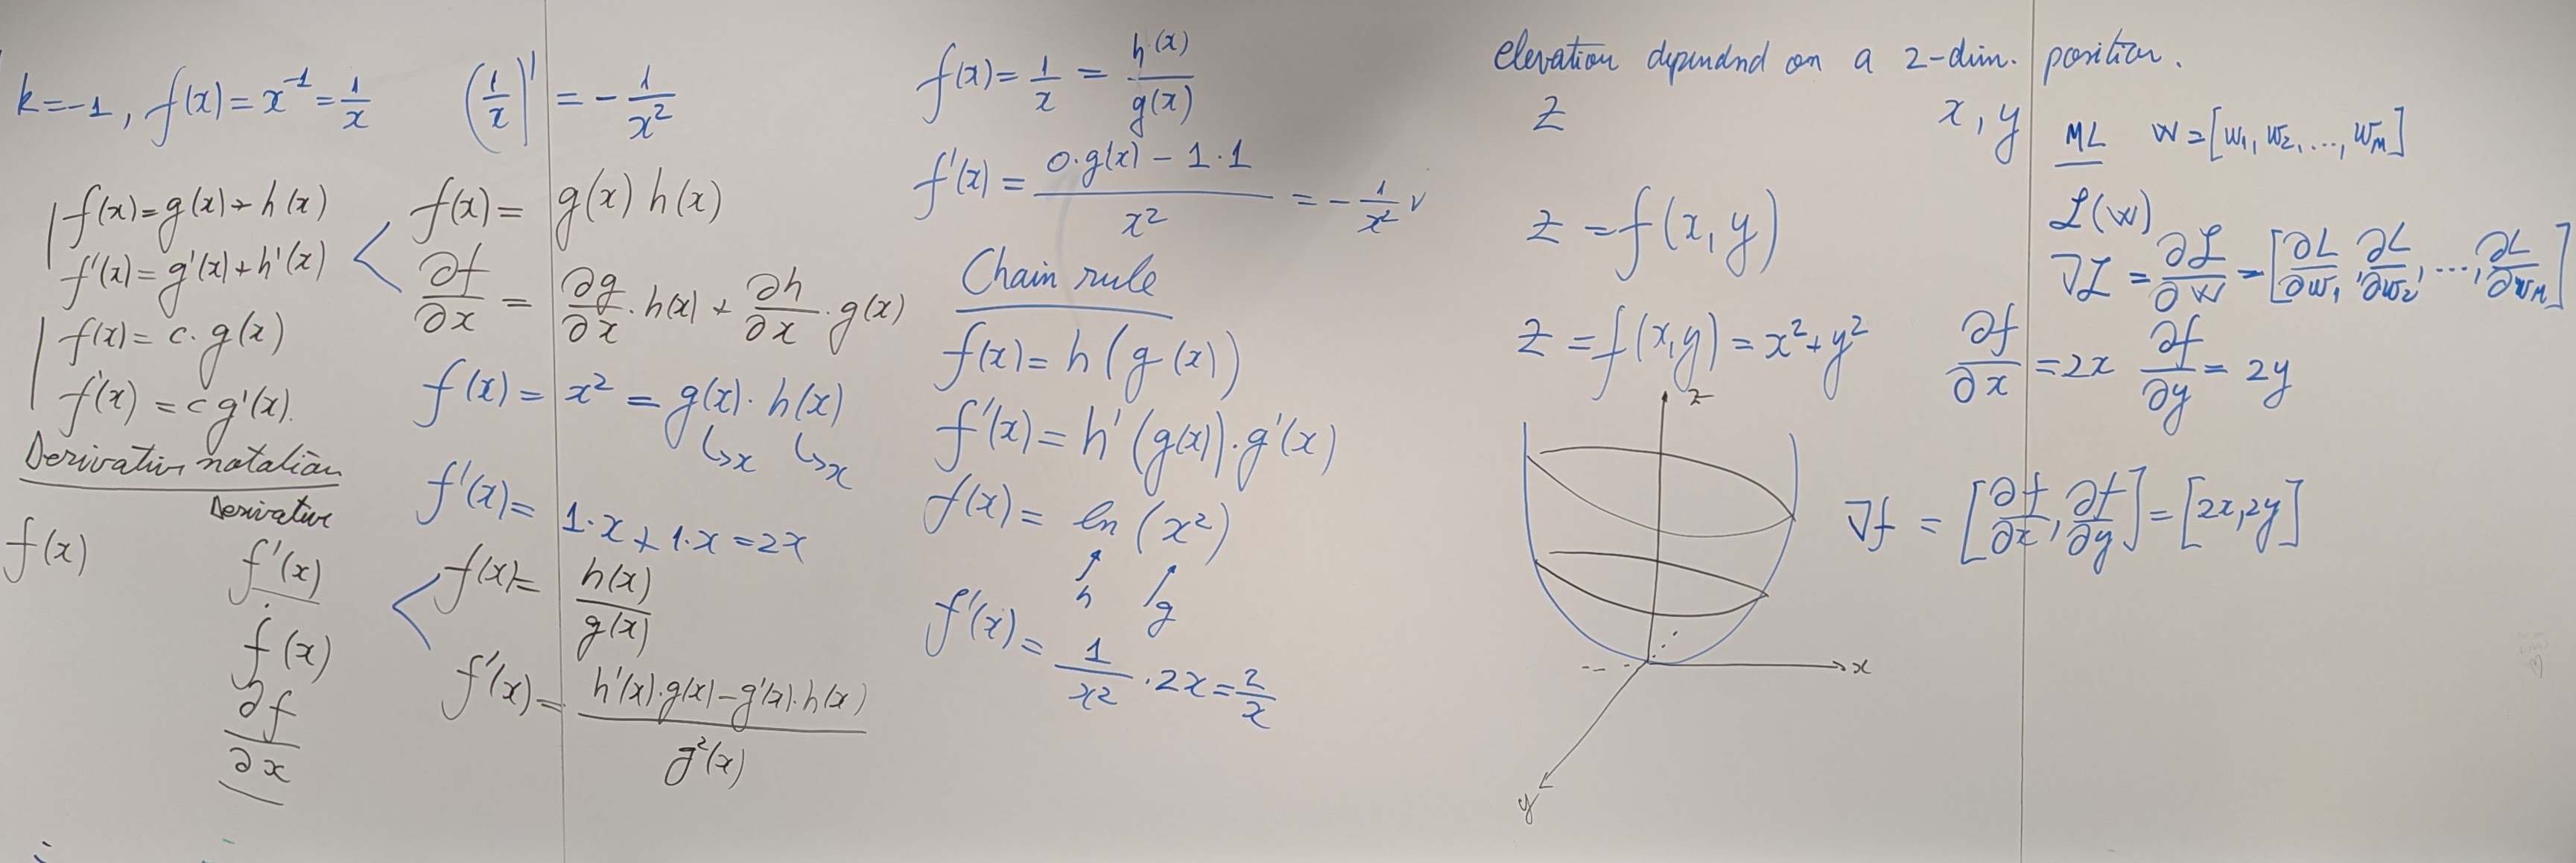 k=-1, f(x) = x⁻¹ = 1/x (1/x)' = - 1/x²
f(x)=g(x)+h(x)
f'(x)=g'(x)+h'(x)
f(x)= c·g(x)
f'(x) = c g'(x).
Derivative notation
Derivative
f(x) f'(x)
ḟ(x)
∂f/∂x
f(x)= g(x) h(x)
∂f/∂x = ∂g/∂x · h(x) + ∂h/∂x · g(x)
f(x) = x² = g(x) · h(x)
↳x ↳x
f'(x) = 1·x + 1·x = 2x
f(x)= h(x)/g(x)
f'(x) = (h'(x)·g(x) - g'(x)·h(x))/g²(x)
f(x) = 1/x = h(x)/g(x)
f'(x) = (0·g(x) - 1·1)/x² = - 1/x² ✓
Chain rule
f(x) = h(g(x))
f'(x) = h'(g(x))·g'(x)
f(x) = ln(x²)
h g
f'(x) = 1/x² · 2x = 2/x
elevation dependnd on a 2-dim. position.
z x, y
z = f(x, y)
z = f(x,y) = x²+y² ∂f/∂x = 2x ∂f/∂y = 2y
z
x
y
∇f = [∂f/∂x, ∂f/∂y] = [2x, 2y]
ML W = [w₁, w₂, ..., w_M]
ℒ(W)
∇ℒ = ∂ℒ/∂W = [∂L/∂w₁, ∂L/∂w₂, ..., ∂L/∂w_M]